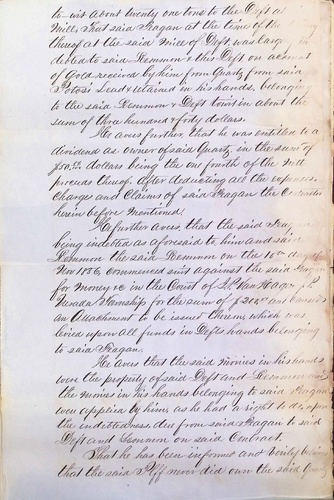 to-wit about twenty one tons to the Deft at
Mill, that said Fagan at the time of the
thereof at the said Mill of Deft, was large in
debted to said Lemmon & this Deft on account
of Gold received by him from Quartz from said
Potosi Lead & retained in his hands, belonging
to the said Lemmon & Deft towit in about the
sum of three hundred & forty dollars.
He avers further, that he was entitled to a
dividend as owner of said Quartz, in the sum of
dollars being the one fourth of the net
proceeds thereof, after deducting all the expenses,
Charges and Claims of said Fagan the Contractor
herein before mentioned.
He further avers, that the said Fagan
being indebted as aforesaid to him and said
Lemmon the said Lemmon on the 10th day of
Nov 1856, commenced suit against the said Fagan
for Money &c in the Court of
Nevada Township for the sum of and caused
an Attachment to be issued therein, which was
levied upon all funds in Defts hands belonging
to said Fagan.
He avers that the said Monies in his hands
were the property of said Deft and Lemmon and
the monies in his hands belonging to said Fagan
were applied by him, as he had a right to do, upon
the indebtedness, due from said Fagan to said
Deft and Lemmon on said Contract.
That he has been informed and verily believes
that the said Plff never did own the said Quartz